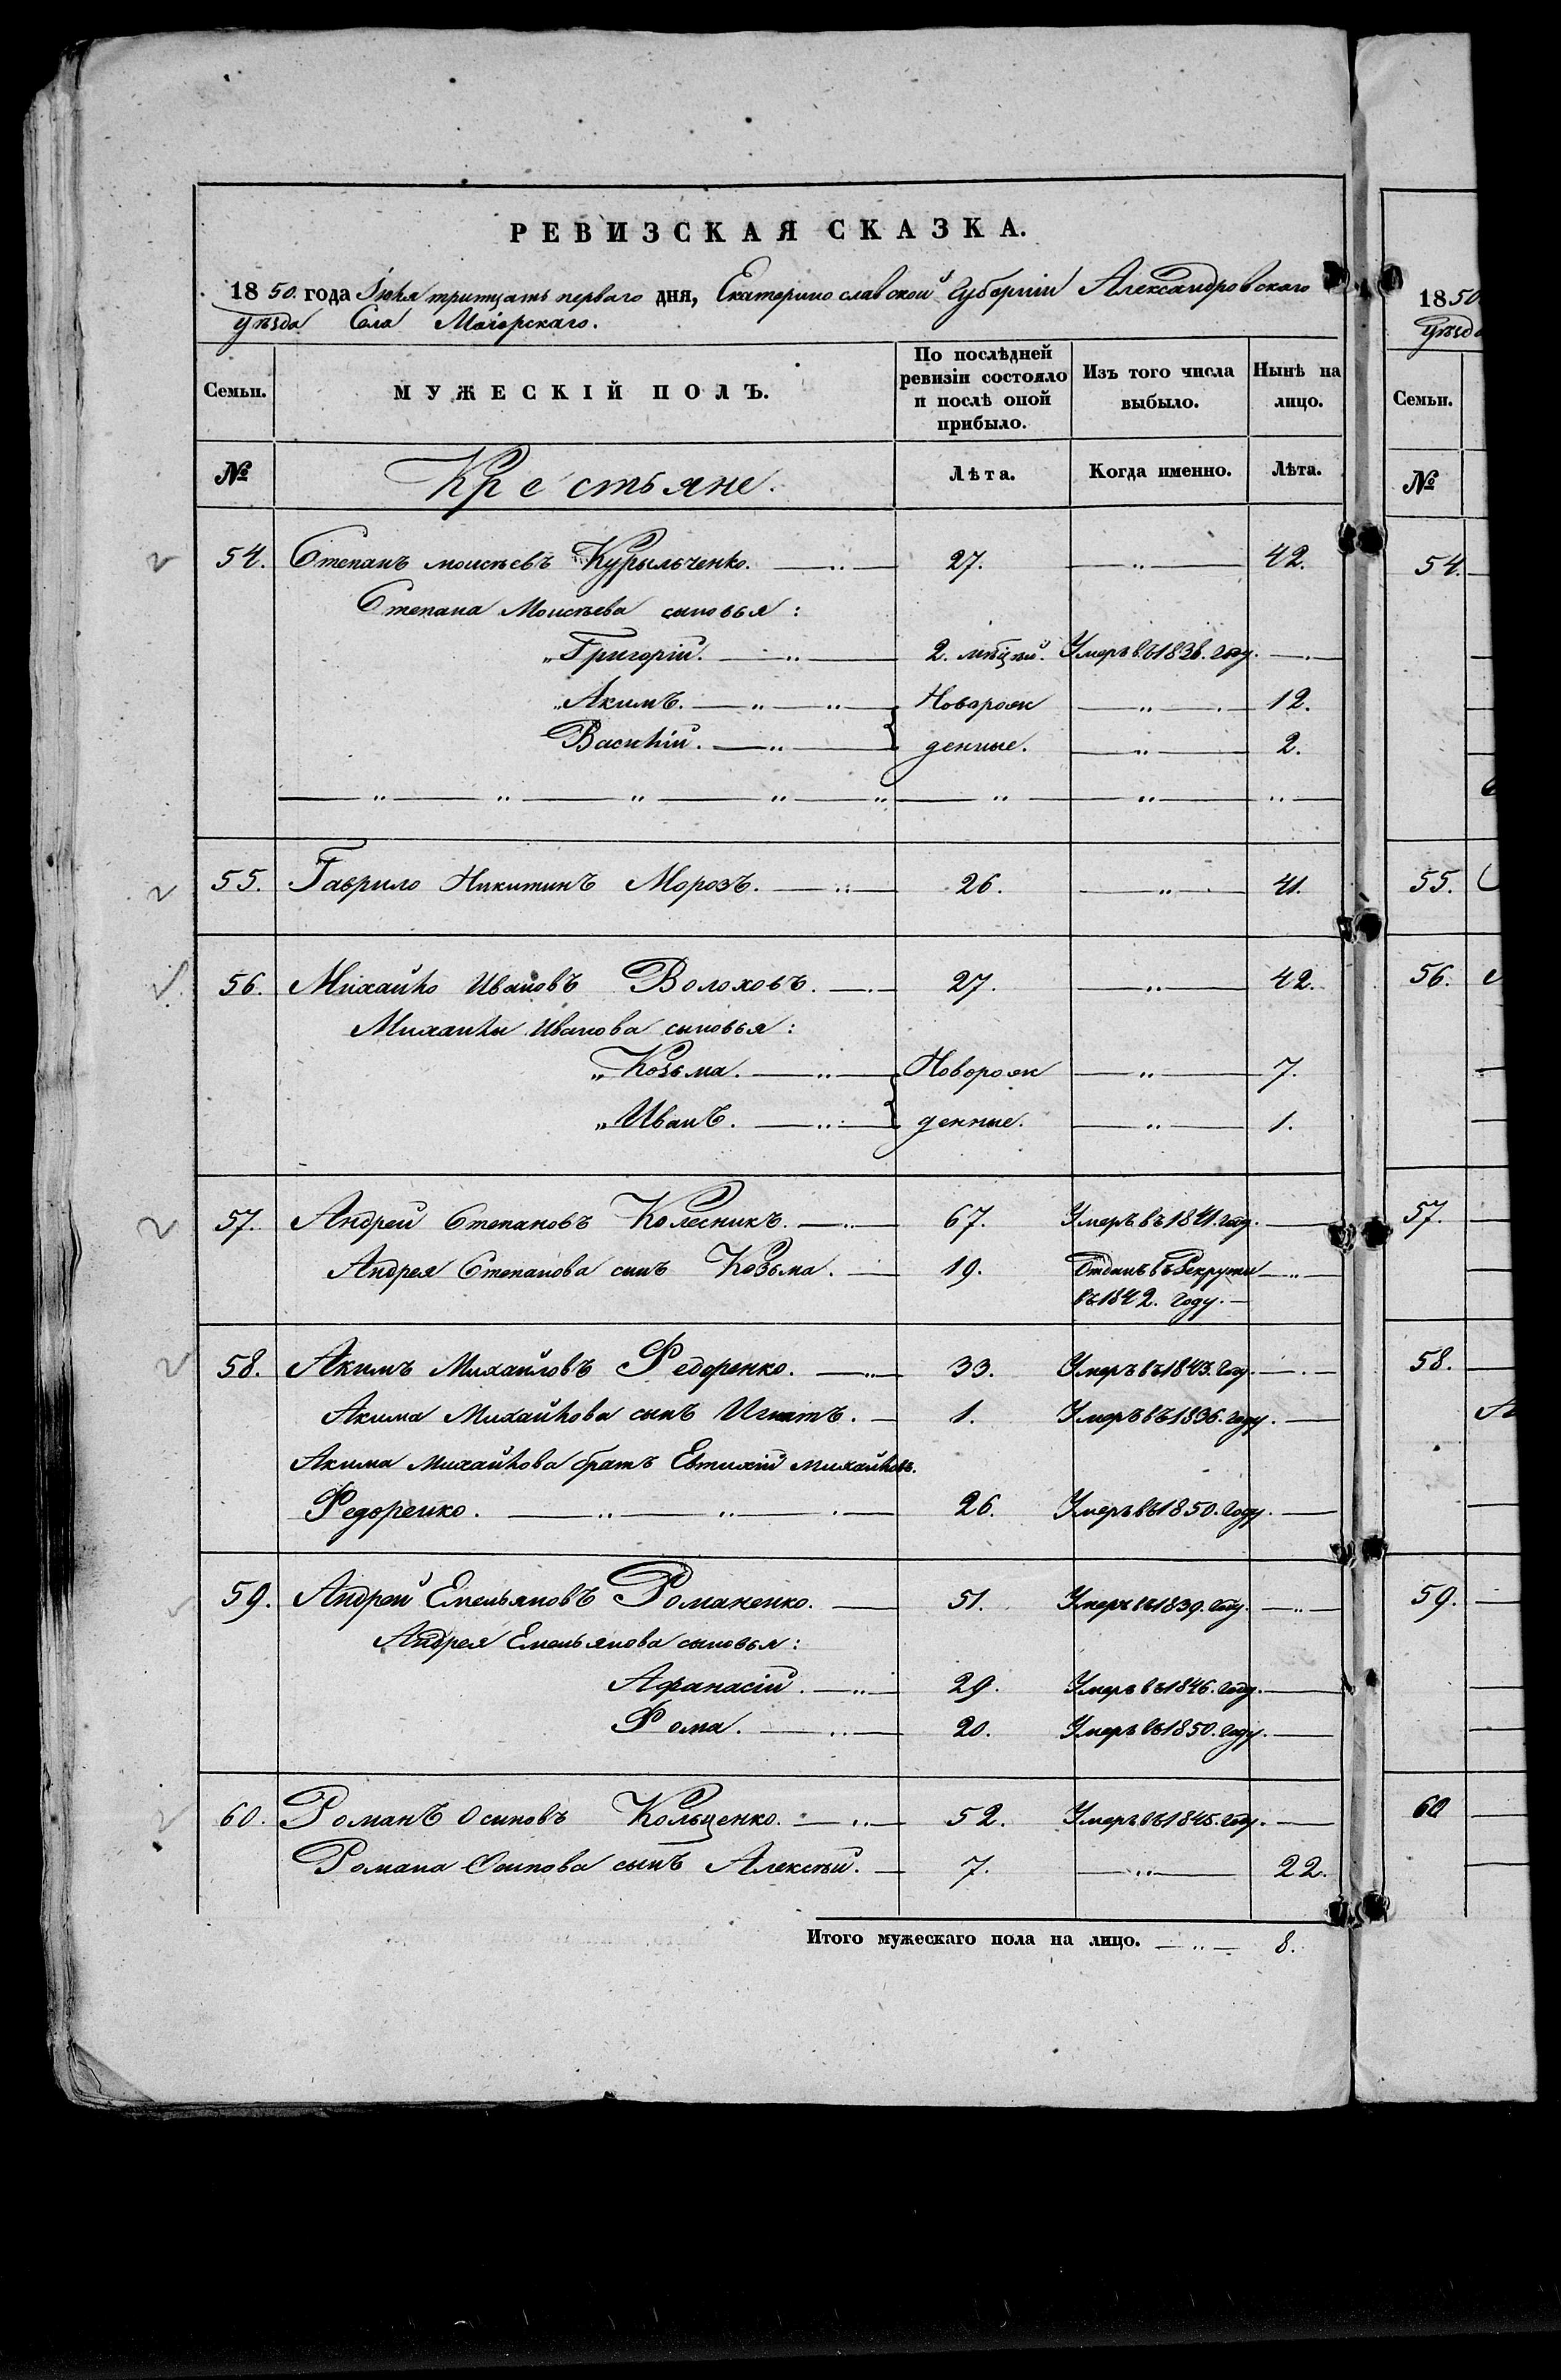 РЕВИЗСКАЯ СКАЗКА.
1850. года Июля тритцать перваго дня, Екатеринославской Губернiи Александровскаго
уѣзда Села Маiорскаго.
Семьи. МУЖЕСКIЙ ПОЛЪ. По послѣдней ревизiи состояло и послѣ оной прибыло. Изъ того числа выбыло. Нынѣ на лицо.
№ Крестьяне. Лѣта. Когда именно. Лѣта.
54. Степанъ моисѣевъ Курыльченко. 27. „ 42.
Степана Моисѣева сыновья:
„Григорiй. 2. мѣсяцѣй. Умеръ въ 1836. году.
„Акимъ. Новорож „ 12.
Василiй. денные. „ 2.
55. Гаврило Никитинъ Морозъ. 26. „ 41.
56. Михайло Ивановъ Волоховъ. 27. „ 42.
Михайлы Иванова сыновья:
„Козьма. Новорож „ 7.
„Иванъ. денные. „ 1.
57. Андрей Степановъ Колесникъ. 67. Умеръ въ 1841. году.
Андрея Степанова сынъ Козьма. 19. Отданъ въ Рекруты
въ 1842. году.
58. Акимъ Михайловъ Ѳедоренко. 33. Умеръ въ 1843. году.
Акима Михайлова сынъ Игнатъ. 1. Умеръ въ 1836. году.
Акима Михайлова братъ Евтихiй михайловъ.
Ѳедоренко. 26. Умеръ въ 1850. году.
59. Андрей Емельяновъ Романенко. 51. Умеръ въ 1839. году.
Андрея Емельянова сыновья:
Афанасiй. 29. Умеръ въ 1846. году.
Ѳома. 20. Умеръ въ 1850. году.
60. Романъ Осиповъ Кольценко. 52. Умеръ въ 1845. году.
Романа Осипова сынъ Алексѣй. 7. „ 22.
Итого мужескаго пола на лицо. 8.
1850
уѣзда
Семьи.
№
54.
55.
56.
57.
58.
59.
60